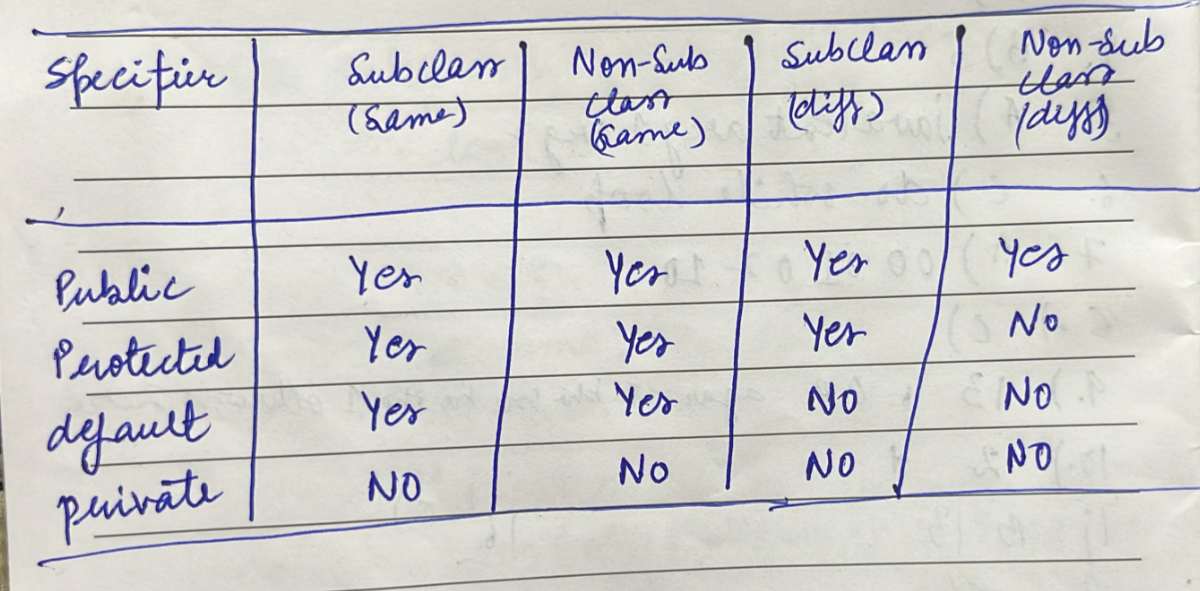 Specifier Subclass (Same) Non-Sub class (Same) Subclass (diff) Non-Sub class (diff)
Public Yes Yes Yes Yes
Protected Yes Yes Yes No
default Yes Yes NO NO
private NO NO NO NO